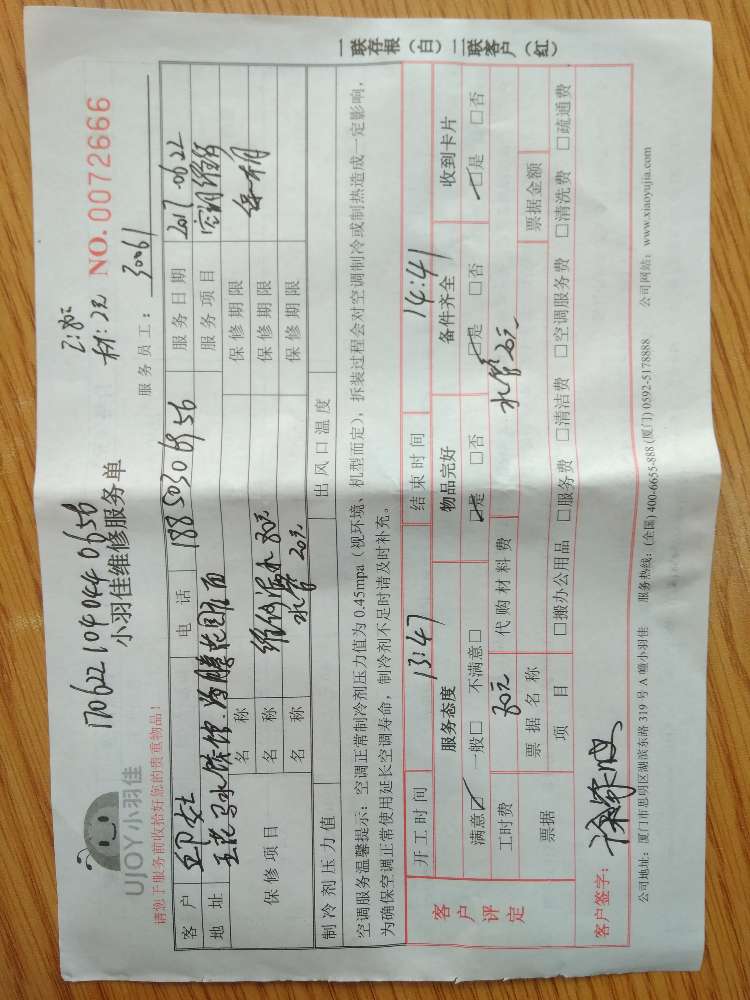 170622104044 0656
UJOY小羽佳
小羽佳维修服务单
NO. 0072666
请您于服务前收拾好您的贵重物品!
服务员工: 30061
客户
电话 188 5030 6956
服务日期 2017-06 22
地址
服务项目 空调维修
保修项目
名称
保修期限
名称 维修漏水 80元
保修期限 保一个月
名称 水管 20元
保修期限
制冷剂压力值
出风口温度
空调服务温馨提示:空调正常制冷剂压力值为 0.45mpa(视环境、机型而定),拆装过程会对空调制冷或制热造成一定影响,
为确保空调正常使用延长空调寿命,制冷剂不足时请及时补充。
开工时间 13:47 结束时间 14:41
客户评定
服务态度 物品完好 备件齐全 收到卡片
满意☑ 一般□ 不满意□ ☑是 □否 ☑是 □否 ☑是 □否
工时费 80元 代购材料费 水管 20元
票据 票据名称 票据金额
项目 □搬办公用品 □服务费 □清洁费 □空调服务费 □清洗费 □疏通费
客户签字:
公司地址:厦门市思明区湖滨东路 319 号 A 幢小羽佳 服务热线:(全国) 400-6655-888 (厦门) 0592-5178888 公司网站:www.xiaoyujia.com
一联存根(白)二联客户(红)